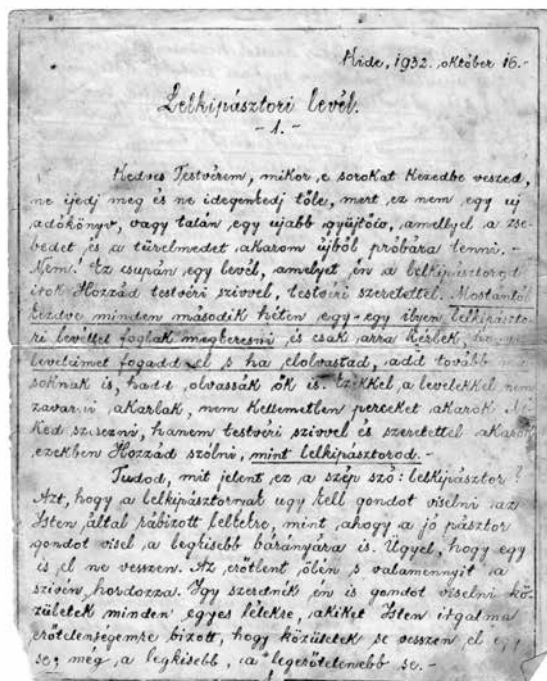 Kide, 1932. október 16.-
Lelkipásztori levél.
- 1. -
Kedves Testvérem, mikor e sorokat kezedbe veszed,
ne ijedj meg és ne idegenkedj tőle, mert ez nem egy uj
adókönyv, vagy talán egy ujabb gyüjtőív, amellyel a zse-
bedet és a türelmedet akarom újból próbára tenni. -
Nem! Ez csupán egy levél, amelyet én a lelkipásztorod
irok Hozzád testvéri szivvel, testvéri szeretettel. Mostantól
kezdve minden második héten egy-egy ilyen lelkipászto-
ri levéllel foglak megkeresni és csak arra kérlek, hogy
leveleimet fogadd el s ha elolvastad, add tovább
soknak is, hadd olvassák ők is. Ezekkel a levelekkel nem
zavarni akarlak, nem kellemetlen perceket akarok Né-
ked szerezni, hanem testvéri szivvel és szeretettel akarok
ezekben Hozzád szólni, mint lelkipásztorod. -
Tudod, mit jelent ez a szép szó: lelkipásztor?
Azt, hogy a lelkipásztornak ugy kell gondot viselni az
Isten által rábizott lelkekre, mint ahogy a jó pásztor
gondot visel a legkisebb bárányára is. Ügyel, hogy egy
is el ne vesszen. Az erőtlent ölében s valamennyit a
szivén hordozza. Igy szeretnék én is gondot viselni kö-
zületek minden egyes lélekre, akiket Isten irgalma
erőtelenségemre bizott, hogy közületek se vesszen el egy
se, még a legkisebb, a legerőtelenebb se. -